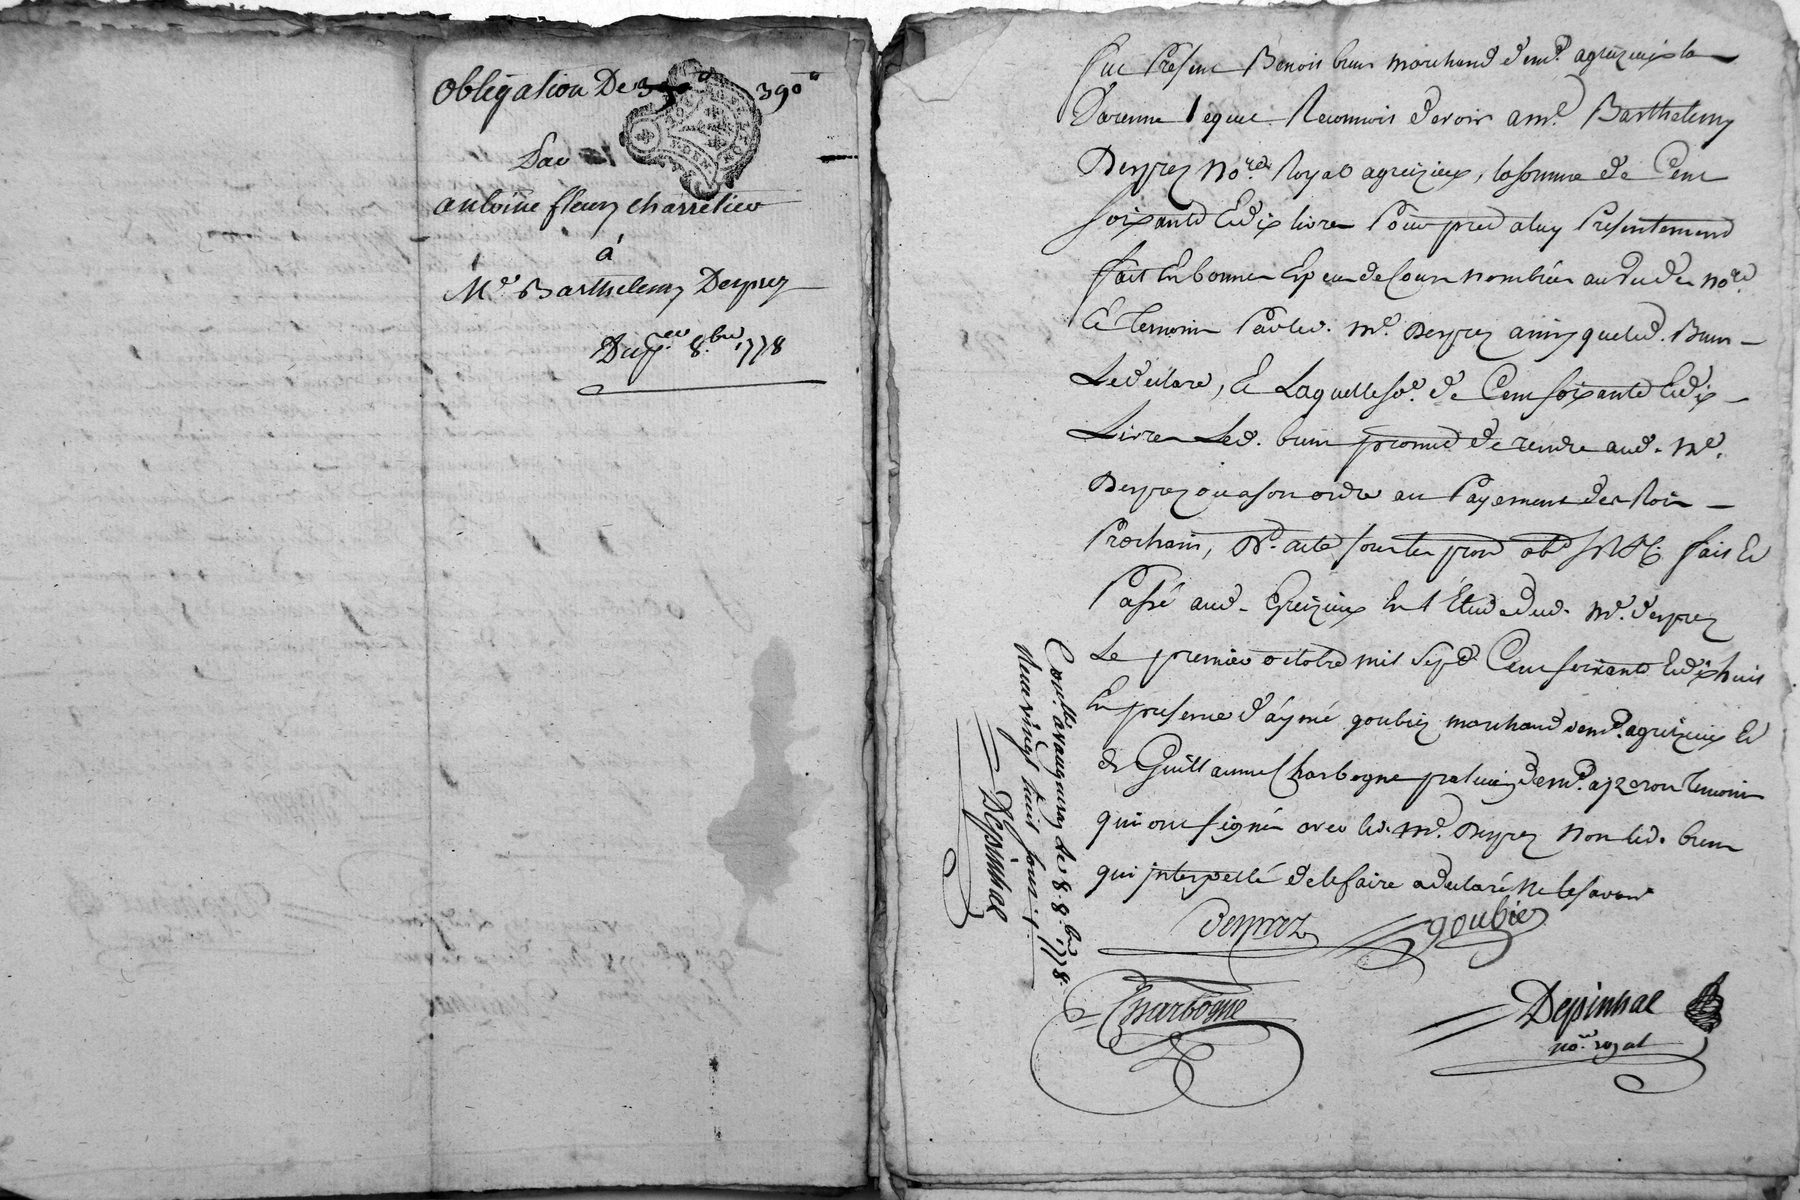 Obligation De 390# 390#
Par
antoine fleury charretier
à
Me Barthelemy Desprez
Du 1er 8.bre 1778
fut Présent Benoit brun marchand demt. a grezieux la
Varenne lequel Reconnoit devoir a me. Barthelemy
Desprez nore. Royal a grezieux, la somme de Cent
soixante Et dix livres Pour pret a luy Présentement
fait En bonnes Especes de Cours nombrées au vu des nore.
Et temoins Par led. me. Desprez ainsy que led. Brun
Le déclare, Et Laquelle se. de Cent soixante Et dix
Livres Led. brun promet de rendre aud. Me.
Desprez ou a son ordre au Payement des Rois
Prochain, Dt. acte sous les pron obon fait Et
Passé aud. Grezieux En l'Etude dud. me. desprez
Le premier octobre mil Sept Cent soixante Et dix huit
En presence d'aymé goubier marchand demt. a grezieux Et
de Guillaume Charbogne praticien demt. temoins
qui ont signé avec led. me. Desprez non led. brun
qui interpellé de le faire a declaré ne le savoir
desprez goubier
Charbogne
Despinhac
nore. royal
Conllé. a vaugneray le 8 8.bre 1778.
Reçu vingt huit sous
Despinhac